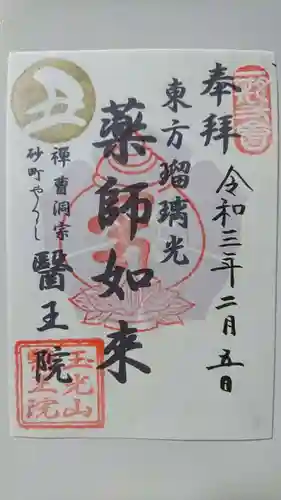 奉拝
令和三年二月五日
東方瑠璃光
薬師如来
丑
禅曹洞宗
砂町やくし
醫王院
玉光山
醫王院